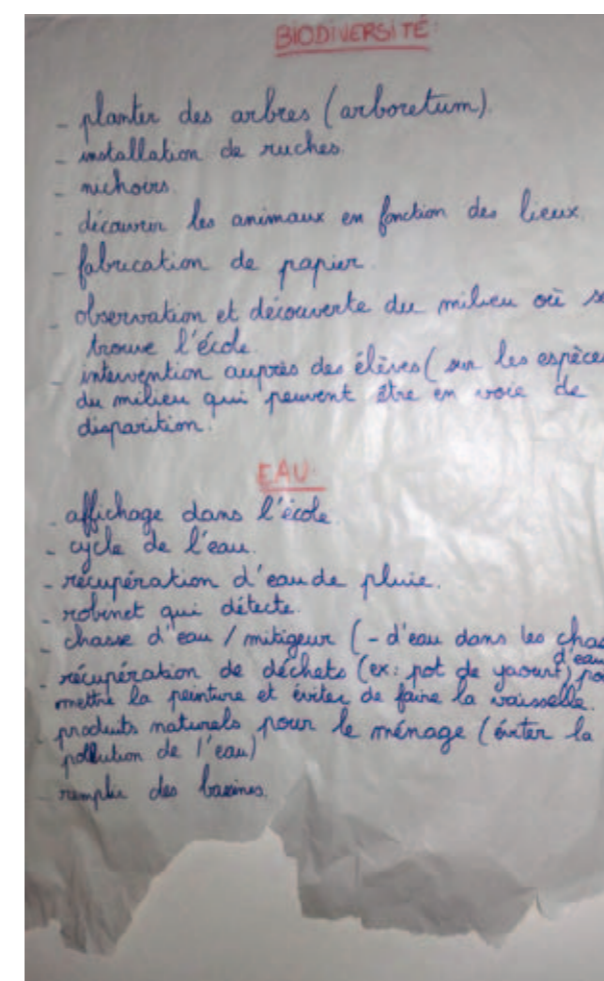 BIODIVERSITÉ:
- planter des arbres (arboretum).
- installation de ruches.
- nichoirs.
- découvrir les animaux en fonction des lieux.
- fabrication de papier.
- observation et découverte du milieu où se
trouve l'école.
- intervention auprès des élèves (sur les espèces
du milieu qui peuvent être en voie de
disparition.
EAU:
- affichage dans l'école.
- cycle de l'eau.
- récupération d'eau de pluie.
- robinet qui détecte.
- chasse d'eau / mitigeur (- d'eau dans les
d'eau
- récupération de déchets (ex: pot de yaourt)
mettre la peinture et éviter de faire la vaisselle.
- produits naturels pour le ménage (éviter la
pollution de l'eau)
- remplir des bassines.